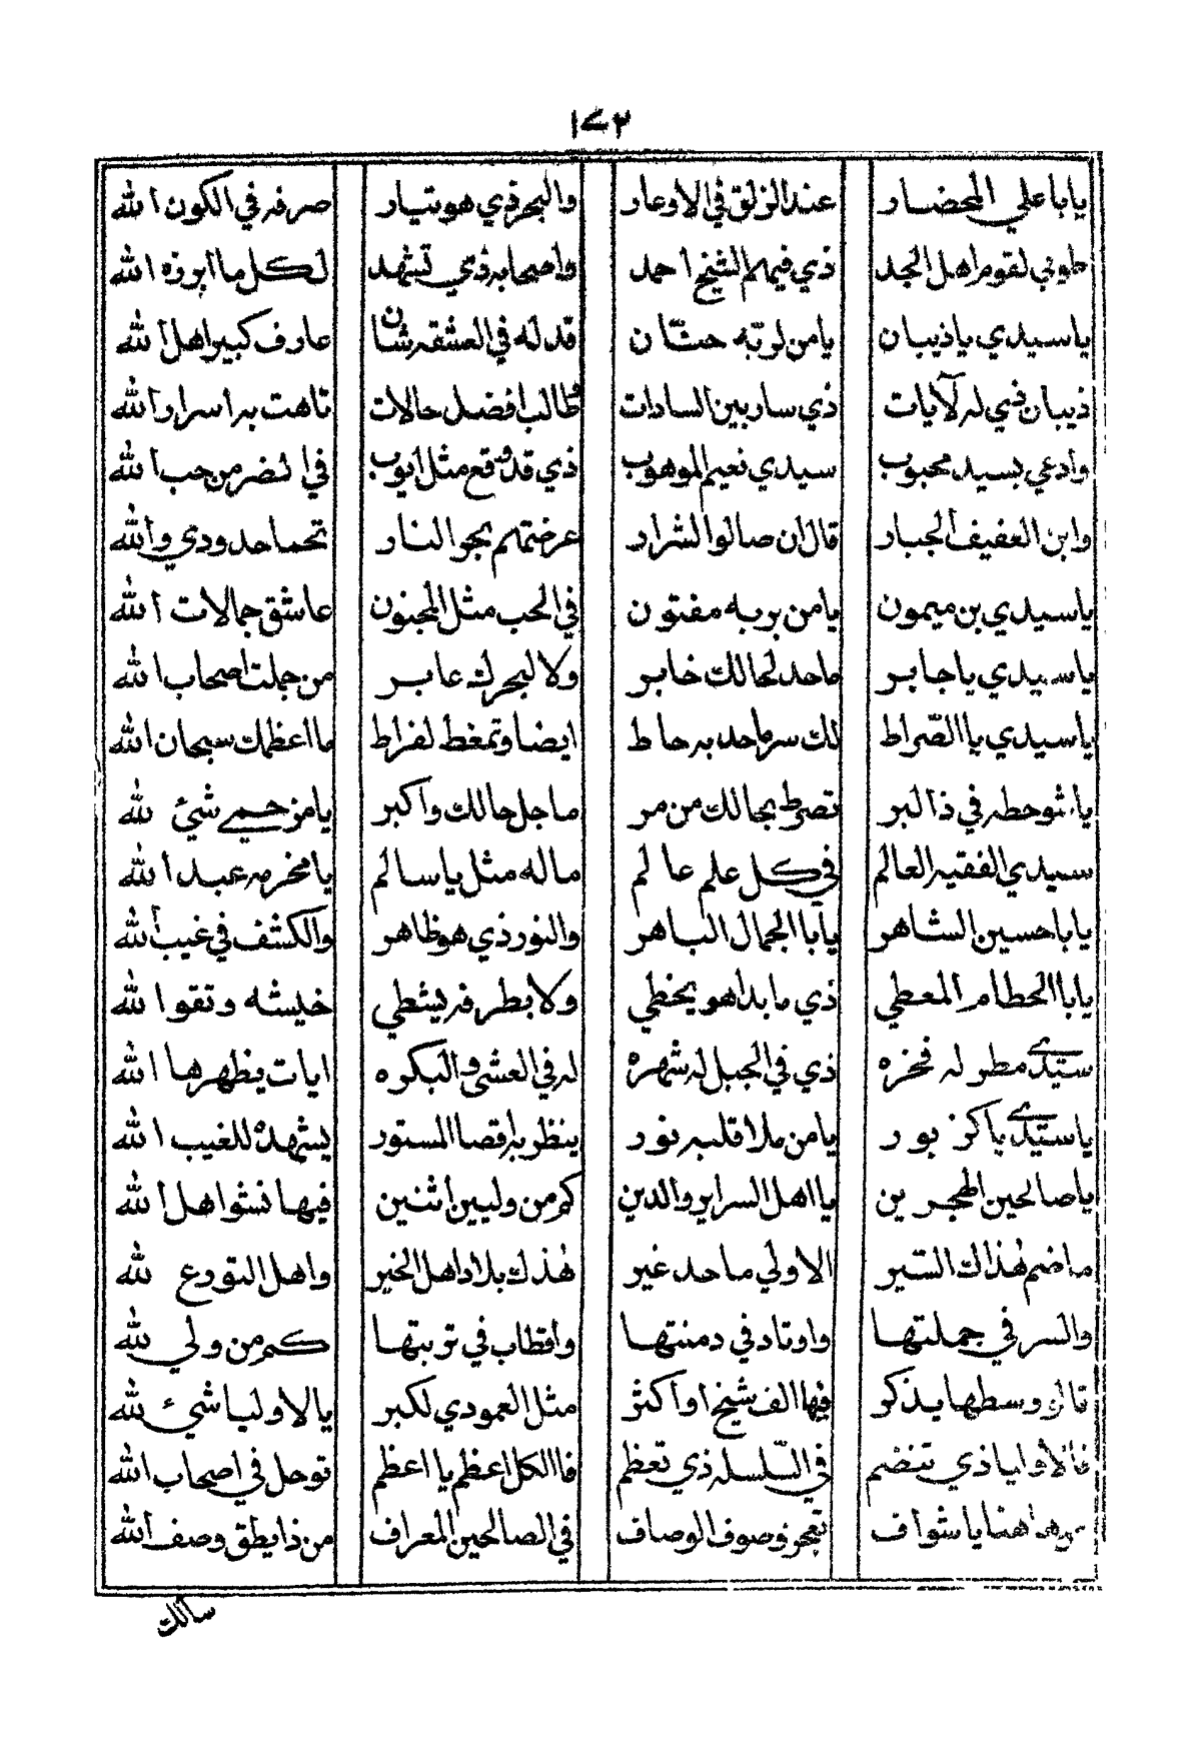 ١٧٢
يابا علي المحضار عند الزلق في الاوعار والبحر ذي هو تيار صرفه في الكون الله
طوبى لقوم اهل الجد ذي فيهم الشيخ احمد واصحابه ذي تشهد لكل ما ابرزه الله
يا سيدي يا ذيبان يا من لربّه حنّان قد له في العشقه شان عارف كبير اهل الله
ذيبان ذي له آلايات ذي سار بين السادات وطالب افضل حالات تاهت به اسرار الله
وادعي بسيد محبوب سيدي نعيم الموهوب ذي قد وقع مثل ايوب في الضر من حب الله
وابن العفيف الجبار قال ان صالوا الشرار عرضتهم بجو النار تحما حدودي والله
يا سيدي بن ميمون يا من بربه مفتون في الحب مثل المجنون عاشق جمالات الله
يا سيدي يا جابر ما حد لحالك خابر ولا لبحرك عابر من جملت اصحاب الله
يا سيدي يا الصّراط لك سر ما حد به حاط ايضا وتمغط لفراط ما اعظمك سبحان الله
يا شوحطه في ذا البر تصرط بحالك من مر ما جل حالك واكبر يا مزحمي شيء لله
سيدي الفقيه العالم في كل علم عالم ماله مثل يا سالم يا مخرمه عبد الله
يابا حسين الشاهر يابا الجمال الباهر والنور ذي هو ظاهر والكشف في غيب الله
يابا الحطام المعطي ذي ما بداهو يخطي ولا بطرفه يشطي خيشه وتقوا الله
سيّدي مطر له فخره ذي في الجبل له شهره له في العشي والبكره ايات يظهرها الله
يا سيّدي باكر بور يا من ملا قلبه نور ينظر به اقصا المستور يشهده للغيب الله
يا صالحين الهجرين يا اهل السراير والدين كم من وليين اثنين فيها نشوا اهل الله
ما ضم هذاك السّير الا ولي ما حد غير هذك بلاد اهل الخير واهل التورع لله
والسر في جملتها واوتاد في دمنتها واقطاب في تربتها كم من ولي لله
قالوا وسطها يذكر فيها الف شيخ او اكثر مثل العمودي لكبر يالاوليا شيء لله
فالاوليا ذي تنضم في السّلسله ذي تعظم فا الكل اعظم يا اعظم توحل في اصحاب الله
هاهنا يا شواف تعجز وصوف الوصاف في الصالحين المعراف من ذا يطق وصف الله
سالك